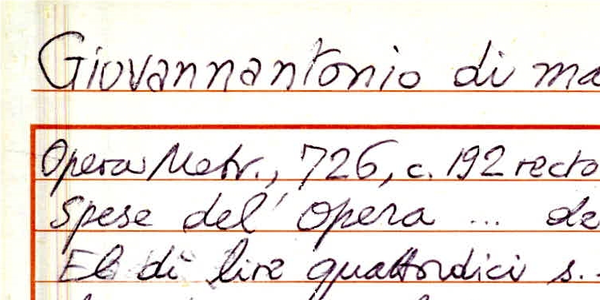 Giovannantonio di ma
Opera Metr., 726, c. 192 recto
Spese del' Opera ... de
E b di lire quattordici s.